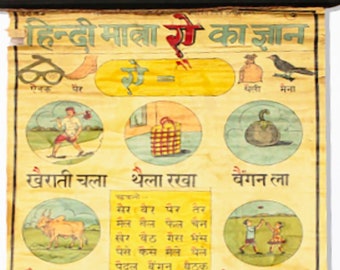 हिन्दी मात्रा ऐ का ज्ञान
ऐनक पैर थैली मैना
खैराती चला थैला रखा बैंगन ला
सैर बैर पैर तैर
मैल गैल फैल बैल
खैर बैठ गैस भैंस
पैसे कैसे मैले थैले
पैदल बैंगन बैठक